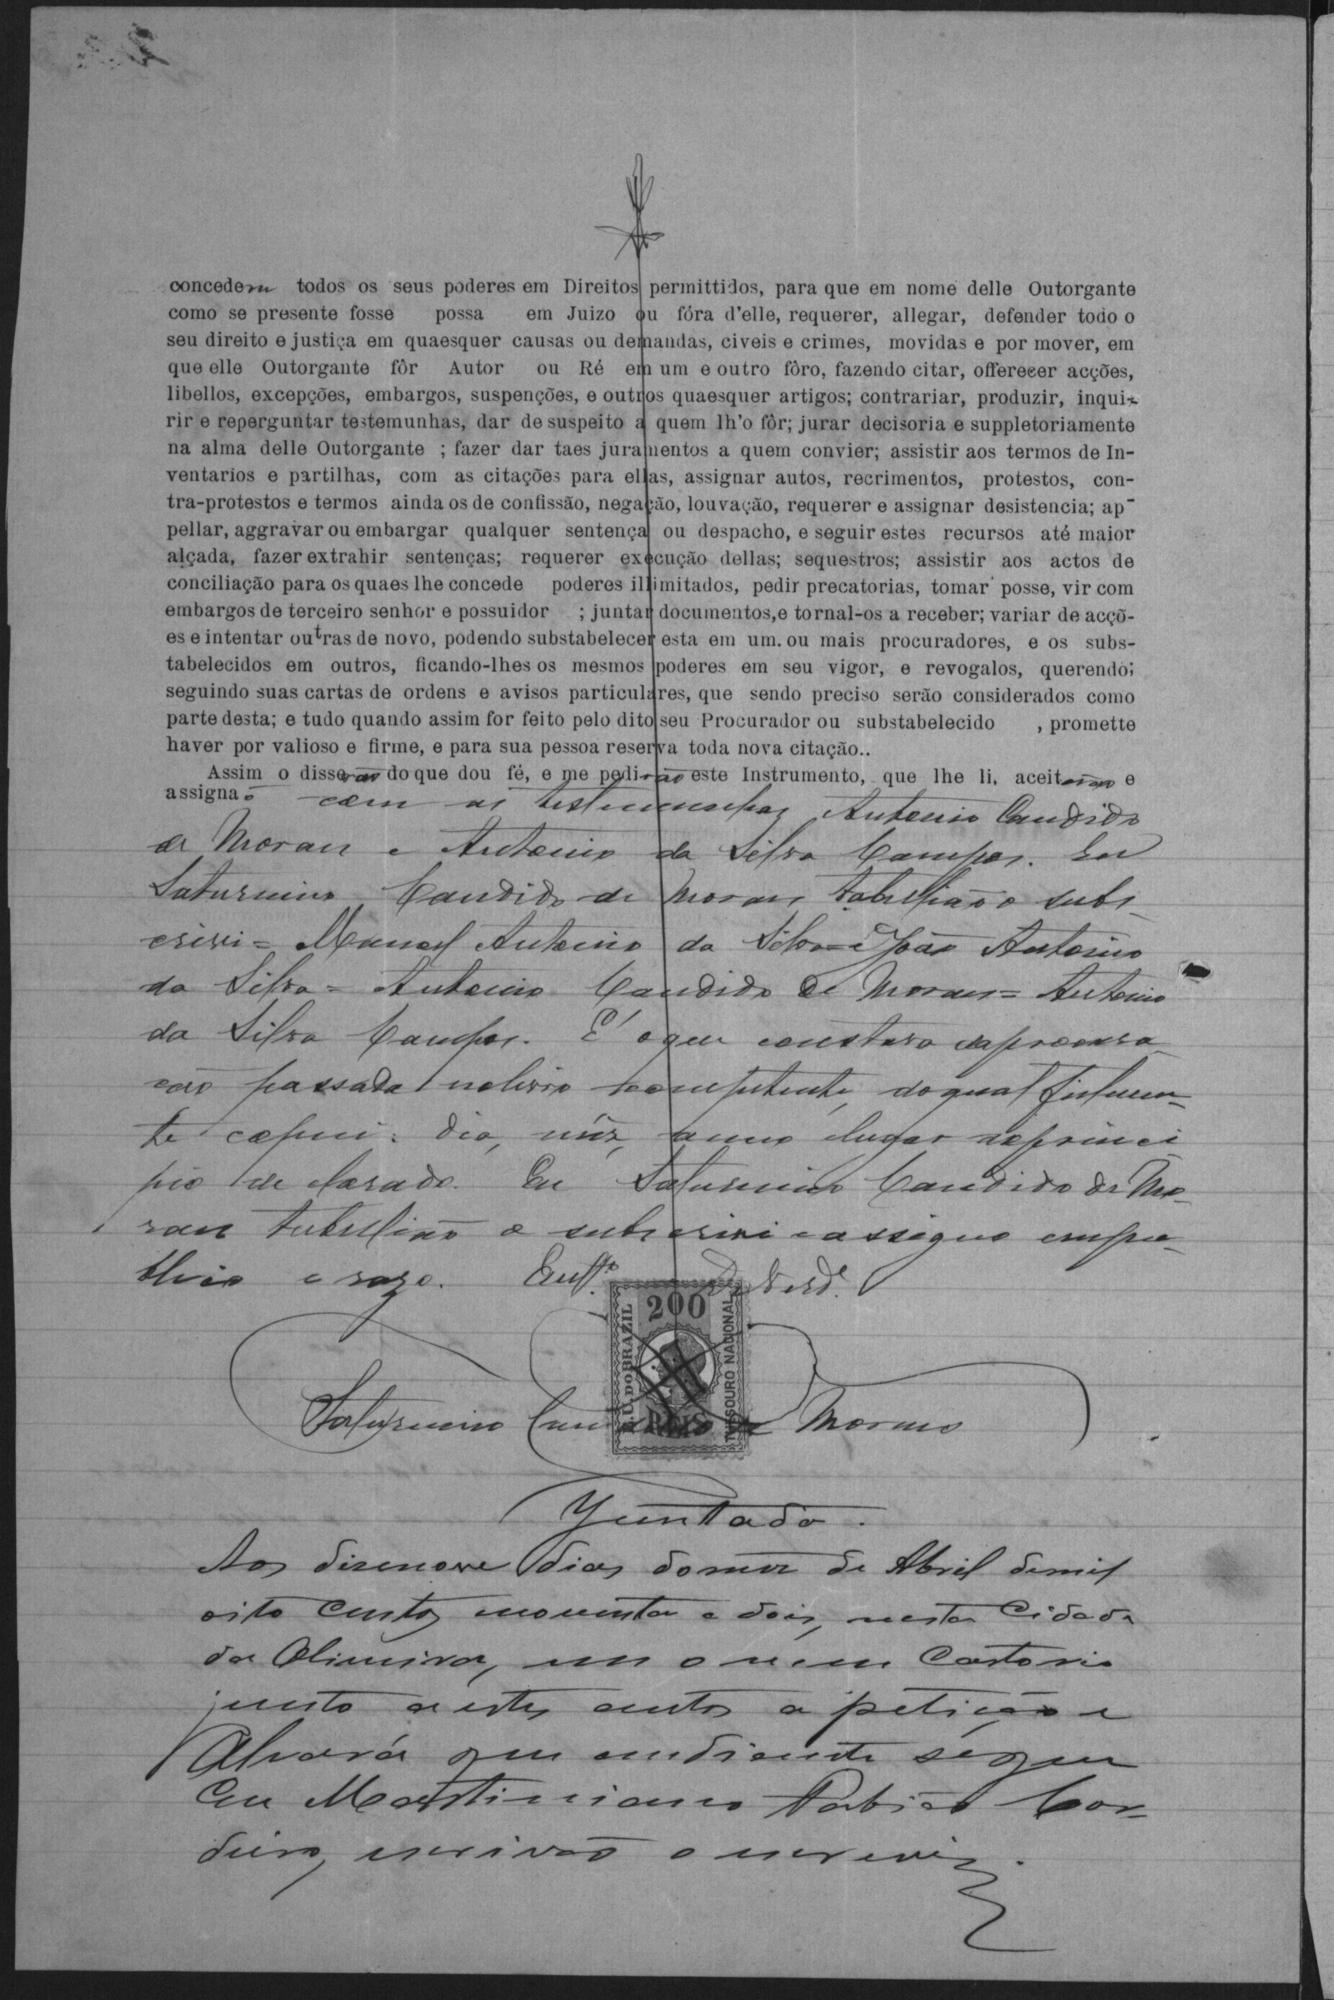 concedem todos os seus poderes em Direitos permittidos, para que em nome delle Outorgante
como se presente fosse possa em Juizo ou fóra d'elle, requerer, allegar, defender todo o
seu direito e justiça em quaesquer causas ou demandas, civeis e crimes, movidas e por mover, em
que elle Outorgante fôr Autor ou Ré em um e outro fôro, fazendo citar, offerecer acções,
libellos, excepções, embargos, suspenções, e outros quaesquer artigos; contrariar, produzir, inqui-
rir e reperguntar testemunhas, dar de suspeito a quem lh'o fôr; jurar decisoria e suppletoriamente
na alma delle Outorgante ; fazer dar taes juramentos a quem convier; assistir aos termos de In-
ventarios e partilhas, com as citações para ellas, assignar autos, recrimentos, protestos, con-
tra-protestos e termos ainda os de confissão, negação, louvação, requerer e assignar desistencia; ap-
pellar, aggravar ou embargar qualquer sentença ou despacho, e seguir estes recursos até maior
alçada, fazer extrahir sentenças; requerer execução dellas; sequestros; assistir aos actos de
conciliação para os quaes lhe concede poderes illimitados, pedir precatorias, tomar posse, vir com
embargos de terceiro senhor e possuidor ; juntar documentos, e tornal-os a receber; variar de acçõ-
es e intentar outras de novo, podendo substabelecer esta em um. ou mais procuradores, e os subs-
tabelecidos em outros, ficando-lhes os mesmos poderes em seu vigor, e revogalos, querendo;
seguindo suas cartas de ordens e avisos particulares, que sendo preciso serão considerados como
parte desta; e tudo quando assim for feito pelo dito seu Procurador ou substabelecido , promette
haver por valioso e firme, e para sua pessoa reserva toda nova citação..
Assim o disserão do que dou fé, e me pedirão este Instrumento, que lhe li, aceitarão e
assignão com as testemunhas Antonio Candido
de Moraes e Antonio da Silva Campos. Eu
Saturnino Candido de Moraes tabellião o subs-
crivi = Manoel Antonio da Silva = João Antonio
da Silva = Antonio Candido de Moraes = Antonio
da Silva Campos. É o que constava da procura
ção passada no livro competente, do qual fielmen-
te copiei. dia, mêz, anno e lugar no princi
pio declarado. Eu Saturnino Candido de Mo-
raes tabellião o subscrivi e assigno em pu-
blico e razo. Em tt.º de verd.e
200
E. U. DO BRAZIL
THESOURO NACIONAL
REIS
Saturnino Candido de Moraes
Juntada.
Aos disenove dias do mez de Abril de mil
oito centos noventa e dois, nesta Cidade
da Oliveira, em o meu Cartorio
junto a estes autos a petição e
Alvará que em diante segue
Eu Martiniano Fabião Cor-
deiro, escrivão o escrevi.